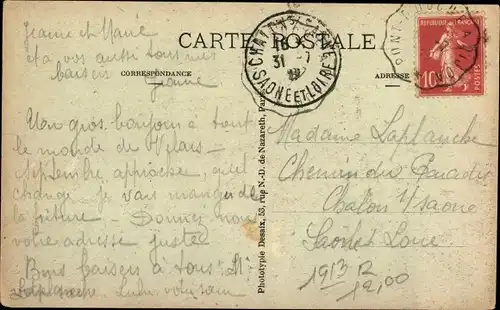 Jeanne et Marie
CARTE POSTALE
CORRESPONDANCE
ADRESSE
vous aussi tous mes
baisers
Jeanne
SAONE ET LOIRE
31 -7
REPUBLIQUE FRANÇAISE
10
POSTES
Un gros bonjour à tout
le monde de
Septembre approche, quel
change je vais manger de
la friture - Donnez nous
votre adresse juste
Bons baisers à tous
Phototypie Desaix, 53, rue N.-D. de Nazareth, Paris
Madame Laplanche
Chemin du Paradis
Chalon s/ Saône
Saône et Loire
1913 R
12,00